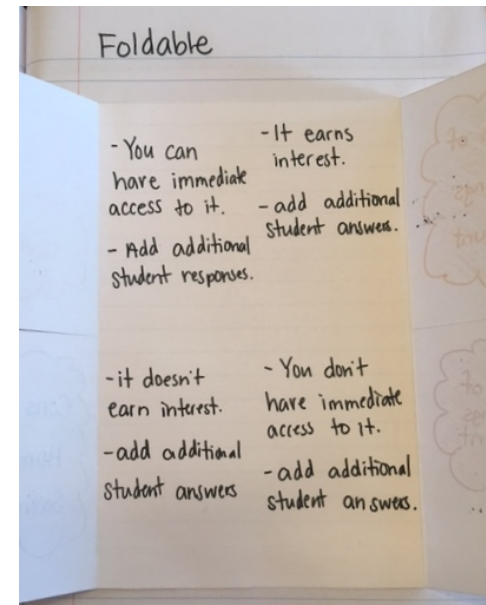 Foldable
- You can
have immediate
access to it.
- Add additional
student responses.
- It earns
interest.
- add additional
student answers.
- it doesn't
earn interest.
- add additional
student answers
- You don't
have immediate
access to it.
- add additional
student answers.